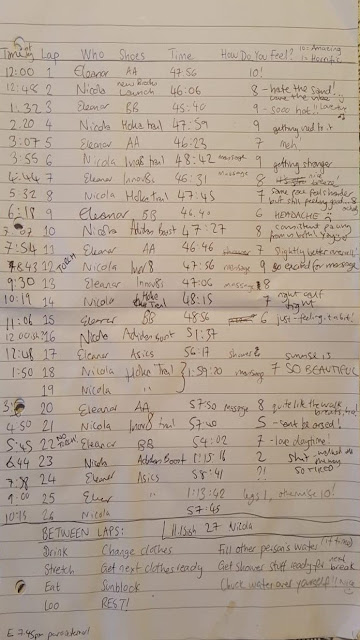 Time Lap Who Shoes Time How Do You Feel? 10: Amazing
12:00 1 Eleanor AA 47:56 10!
12:48 2 Nicola new Rocks Launch 46:06 8 - hate the sand!
1:32 3 Eleanor BB 45:40 9 - sooo hot!
2.20 4 Nicola Hoka trail 47:59 9 getting used to it
3:07 5 Eleanor AA 46:23 7 meh
3:55 6 Nicola Inov8 trail 48:42 massage 9 getting stronger
4:44 7 Eleanor Innov8s 46:31 massage 8
5:32 8 Nicola Hoka trail 47:45 7 same pace feels harder but still feeling good
6:18 9 Eleanor BB 46.40 6 HEADACHE
10 Nicola Adidas boost 47:27 8
7:54 11 Eleanor AA 46:46 7 Slightly better overall!
8:43 12 TORCH Nicola Inov8 47:56 massage 9 so excited for massage
9:30 13 Eleanor Innov8s 47:06 massage 8
10:19 14 Nicola Hoka Trail 48:15 7 right calf tight
11:06 15 Eleanor BB 48:56 6 just-feeling-it a bit!
16 Nicola Adidas boost 51:37
12:48 17 Eleanor Asics 56:17 shower
1:50 18 Nicola Hoka Trail 1:59:20 massage 7 SO BEAUTIFUL
19 Nicola "
20 Eleanor AA 57:50 massage 8 quite like the walk breaks, tho!
4.50 21 Nicola Inov8 trail 57:40 5
5:45 22 NO TORCH! Eleanor BB 54:02 7 - love daytime!
6.44 23 Nicola Adidas Boost 1:15:16 2
7:58 24 Eleanor Asics 58:41 ?! SO TIRED
9:00 25 Elenor " 1:13:42 legs 1, otherwise 10!
10:15 26 Nicola 57:45
BETWEEN LAPS: 27 Nicola
Drink Change clothes Fill other person's water
Stretch Get next clothes ready Get shower stuff ready for next break
Eat Sunblock Chuck water over yourself!!
Loo REST!
E 7.45pm paracetamol